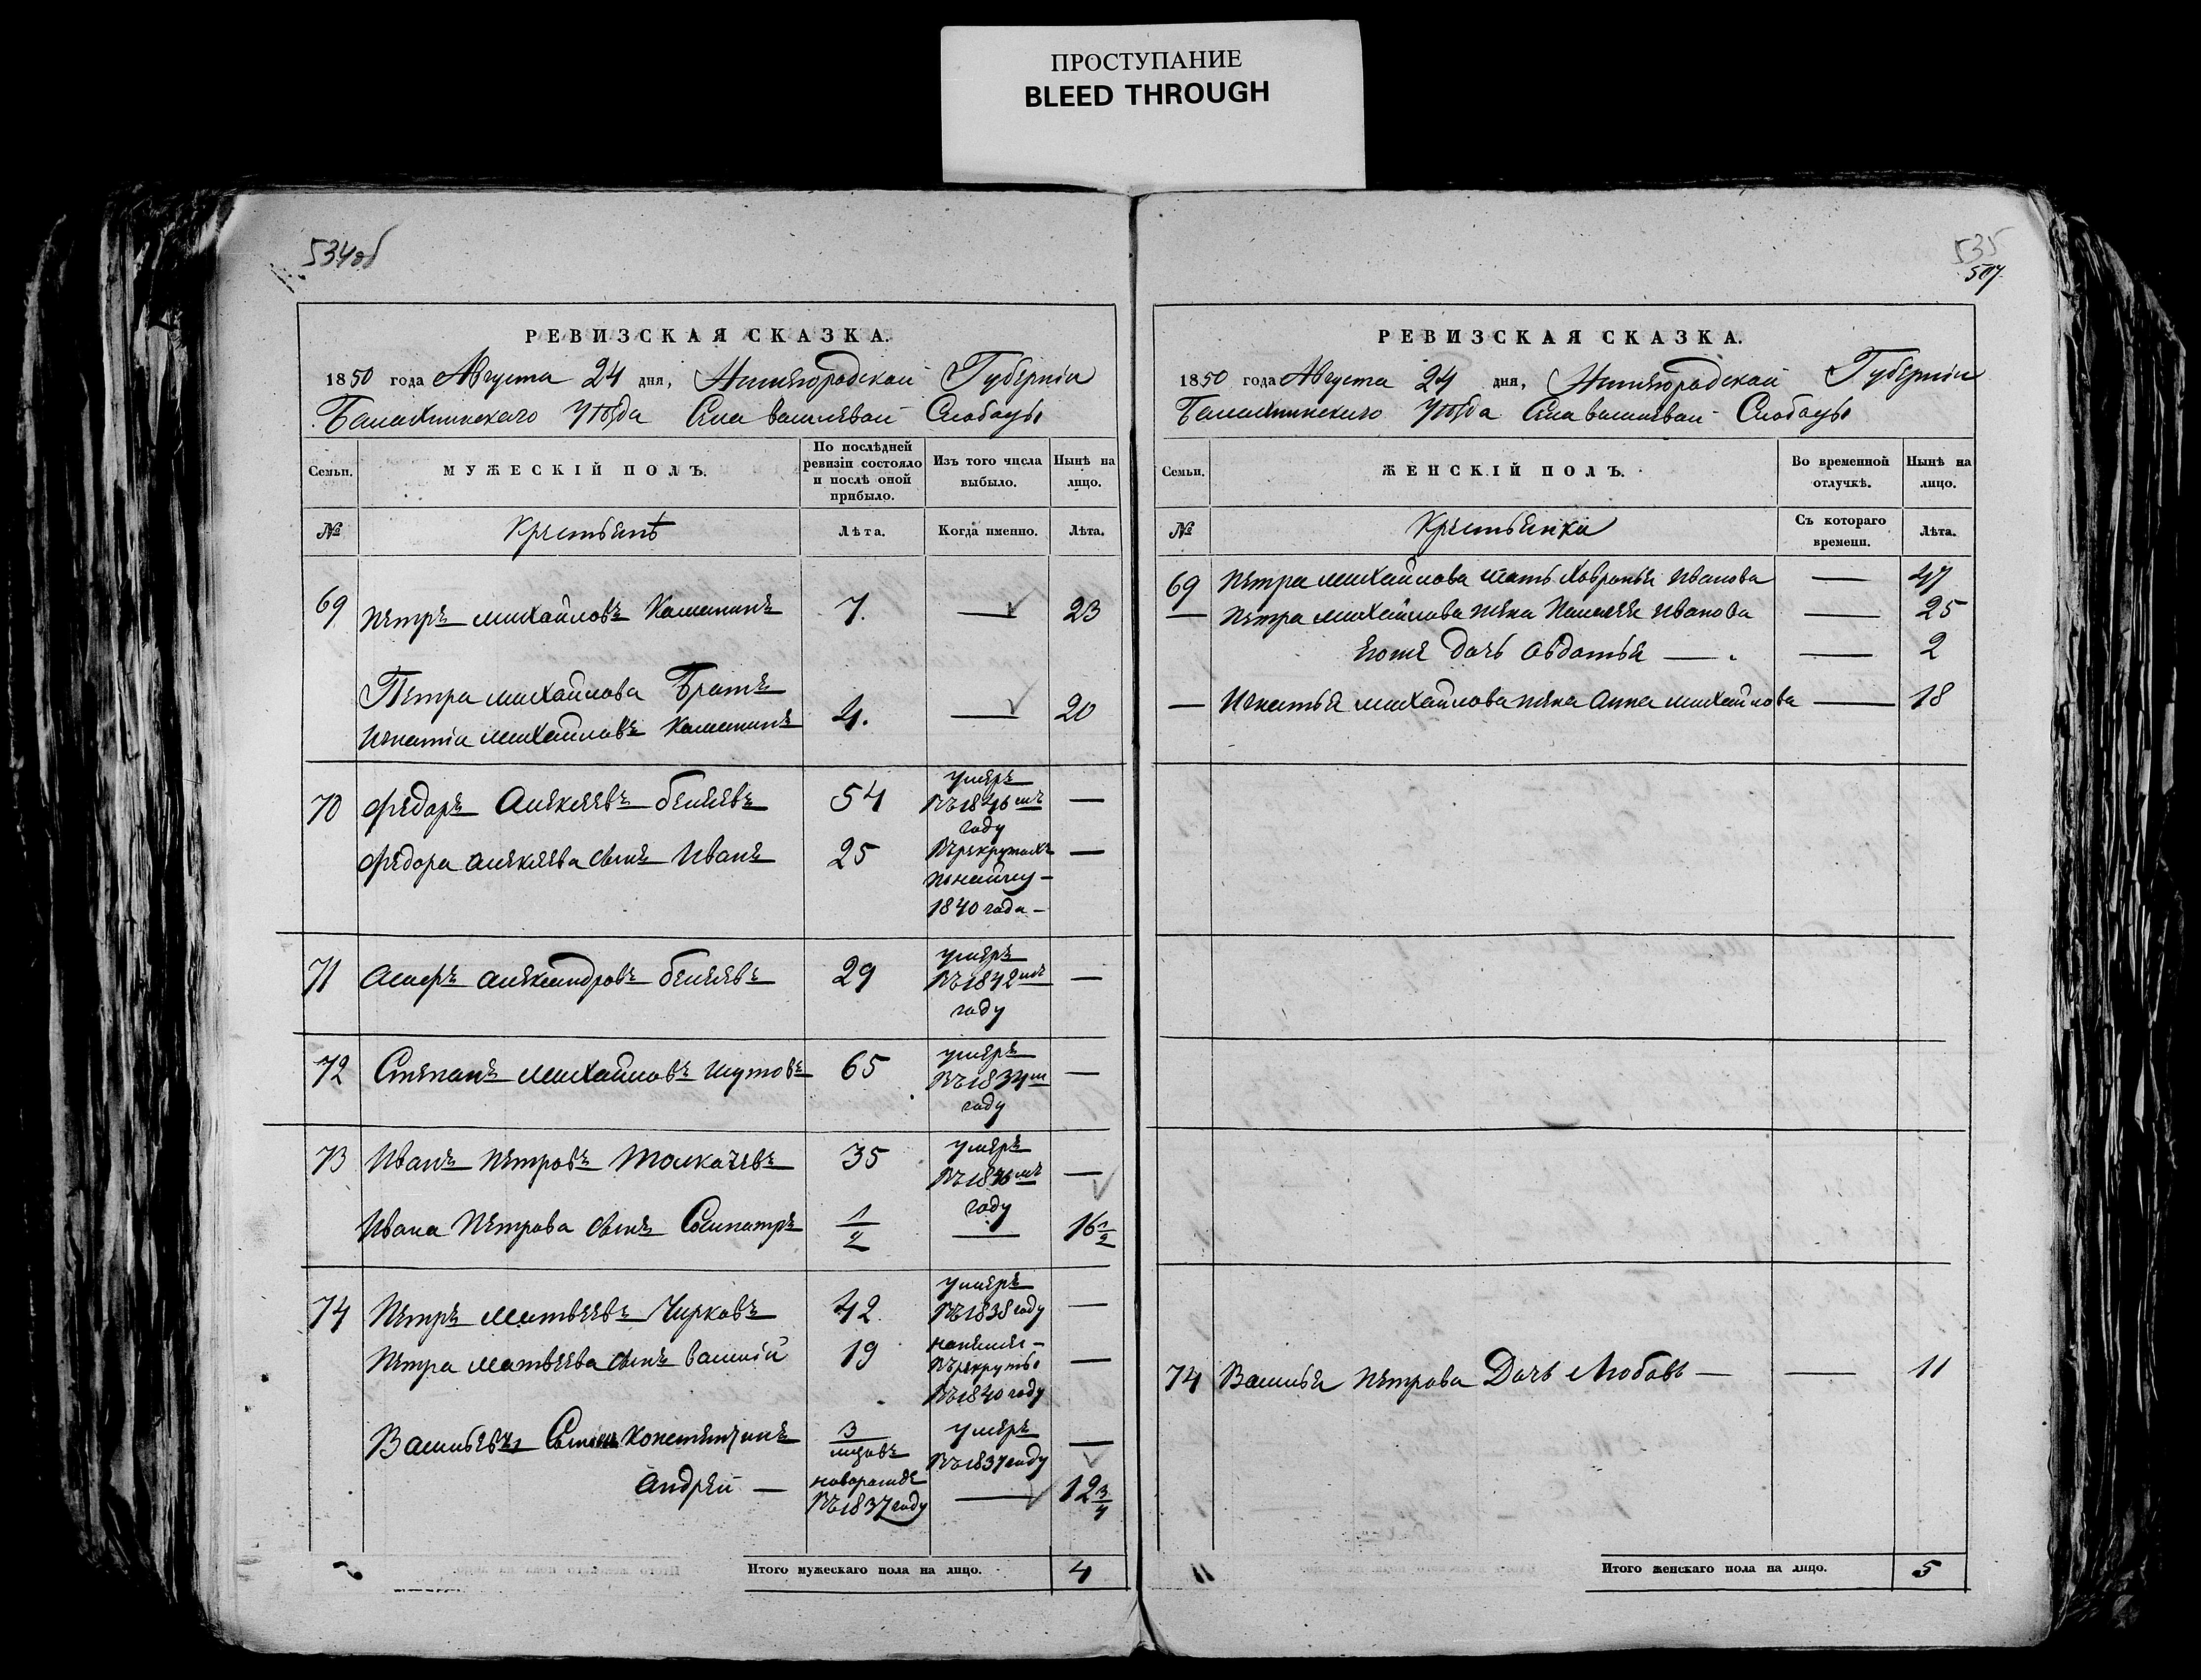 ПРОСТУПАНИЕ
BLEED THROUGH
534об
РЕВИЗСКАЯ СКАЗКА.
1850 года Августа 24 дня, Нижегородской Губерніи
Балахнинскаго Уѣзда Села Василевой Слободы
Семьи.
МУЖЕСКІЙ ПОЛЪ.
По послѣдней ревизіи состояло и послѣ оной прибыло.
Изъ того числа выбыло.
Нынѣ на лицо.
№
Крестьянъ
Лѣта.
Когда именно.
Лѣта.
69 Петръ Михайловъ 7. — 23
Петра Михайлова Братъ
Игнатій Михайловъ 4. — 20
70 Федоръ Алексеевъ Беляевъ 54 умеръ въ 1846мъ году —
Федора Алексеева сынъ Иванъ 25 въ рекрутахъ по найму — 1840 года — —
71 Александровъ Беляевъ 29 умеръ въ 1842мъ году —
72 Степанъ Михайловъ Шутовъ 65 умеръ въ 1834м году —
73 Иванъ Петровъ Толкачевъ 35 умеръ въ 1846мъ году —
Ивана Петрова сынъ Сосипатръ 1/2 — 16 1/2
74 Петръ Матвеевъ Чирковъ 42 умеръ въ 1838 году —
Петра Матвеева сынъ Василій 19 въ рекруты въ 1840 году —
Васильевы Константинъ 3 умеръ въ 1837 году —
Андрей — въ 1837 году — 12 3/4
Итого мужескаго пола на лицо. 4
535
507
РЕВИЗСКАЯ СКАЗКА.
1850 года Августа 24 дня, Нижегородской Губерніи
Балахнинскаго Уѣзда Села Василевой Слободы
Семьи.
ЖЕНСКІЙ ПОЛЪ.
Во временной отлучкѣ.
Нынѣ на лицо.
№
Крестьянка
Съ котораго времени.
Лѣта.
69 Петра Михайлова мать Ховронья Иванова — 47
— Петра Михайлова жена Пелагея Иванова — 25
его же дочь Авдотья — — 2
— Игнатья Михайлова жена Анна Михайлова — 18
74 Василья Петрова Дочь Любовь — — 11
Итого женскаго пола на лицо. 5